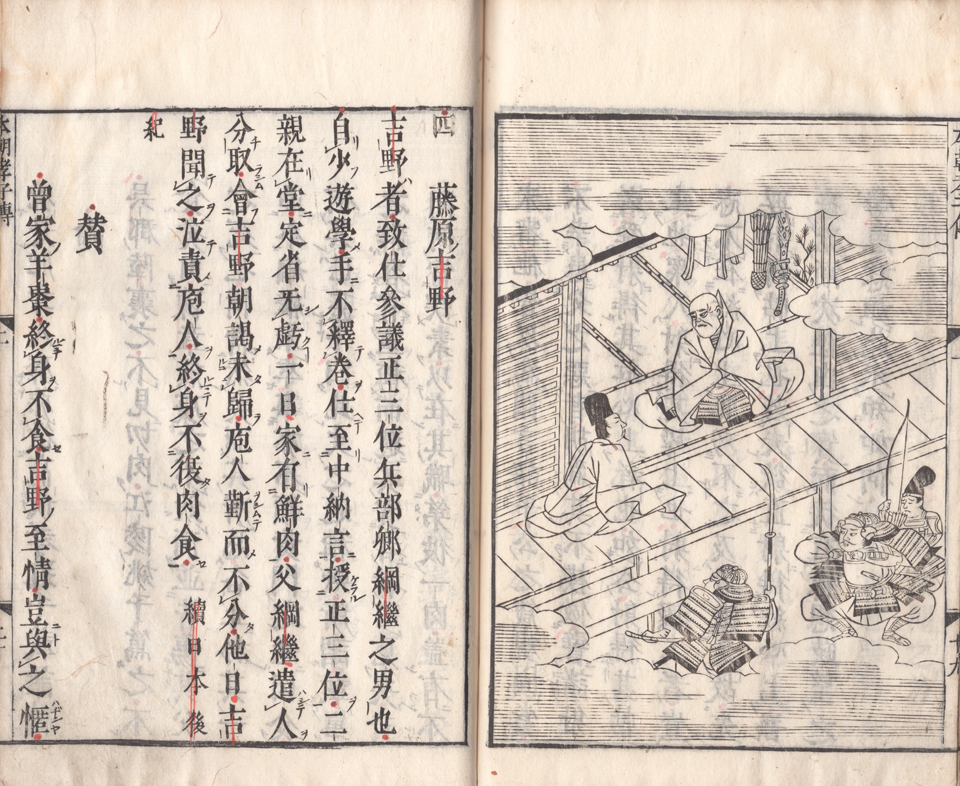 四
藤原吉野
吉野者致仕參議正三位兵部卿綱繼之男也
自少遊學手不釋卷仕至中納言授正三位二
親在堂定省无虧一日家有鮮肉父綱繼遣人
分取會吉野朝謁未歸庖人蘄而不分他日吉
野聞之泣責庖人終身不復肉食 續日本後
紀
賛
曾家羊棗終身不食吉野至情豈與之恇
本朝孝子傳